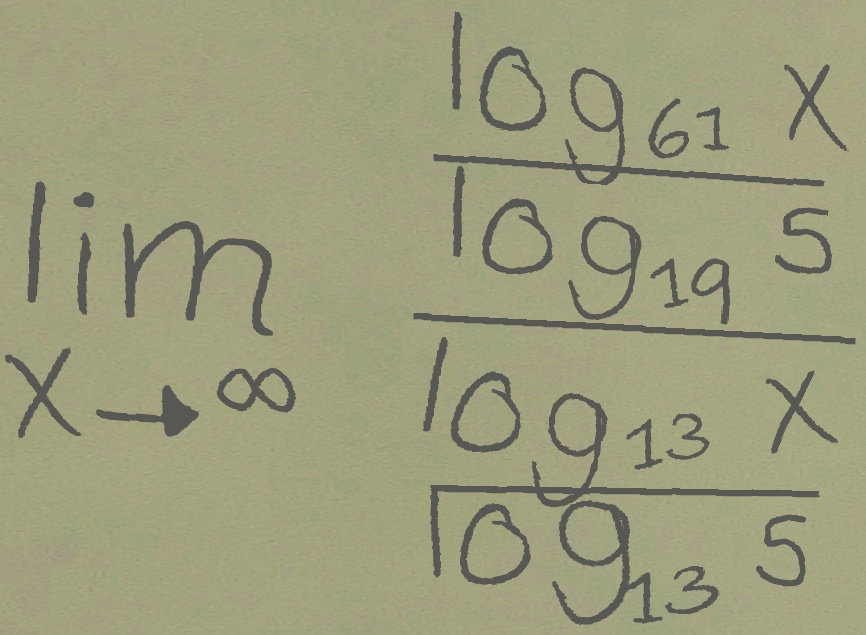 lim x→∞
log₆₁ x
log₁₉ 5
log₁₃ x
log₁₃ 5